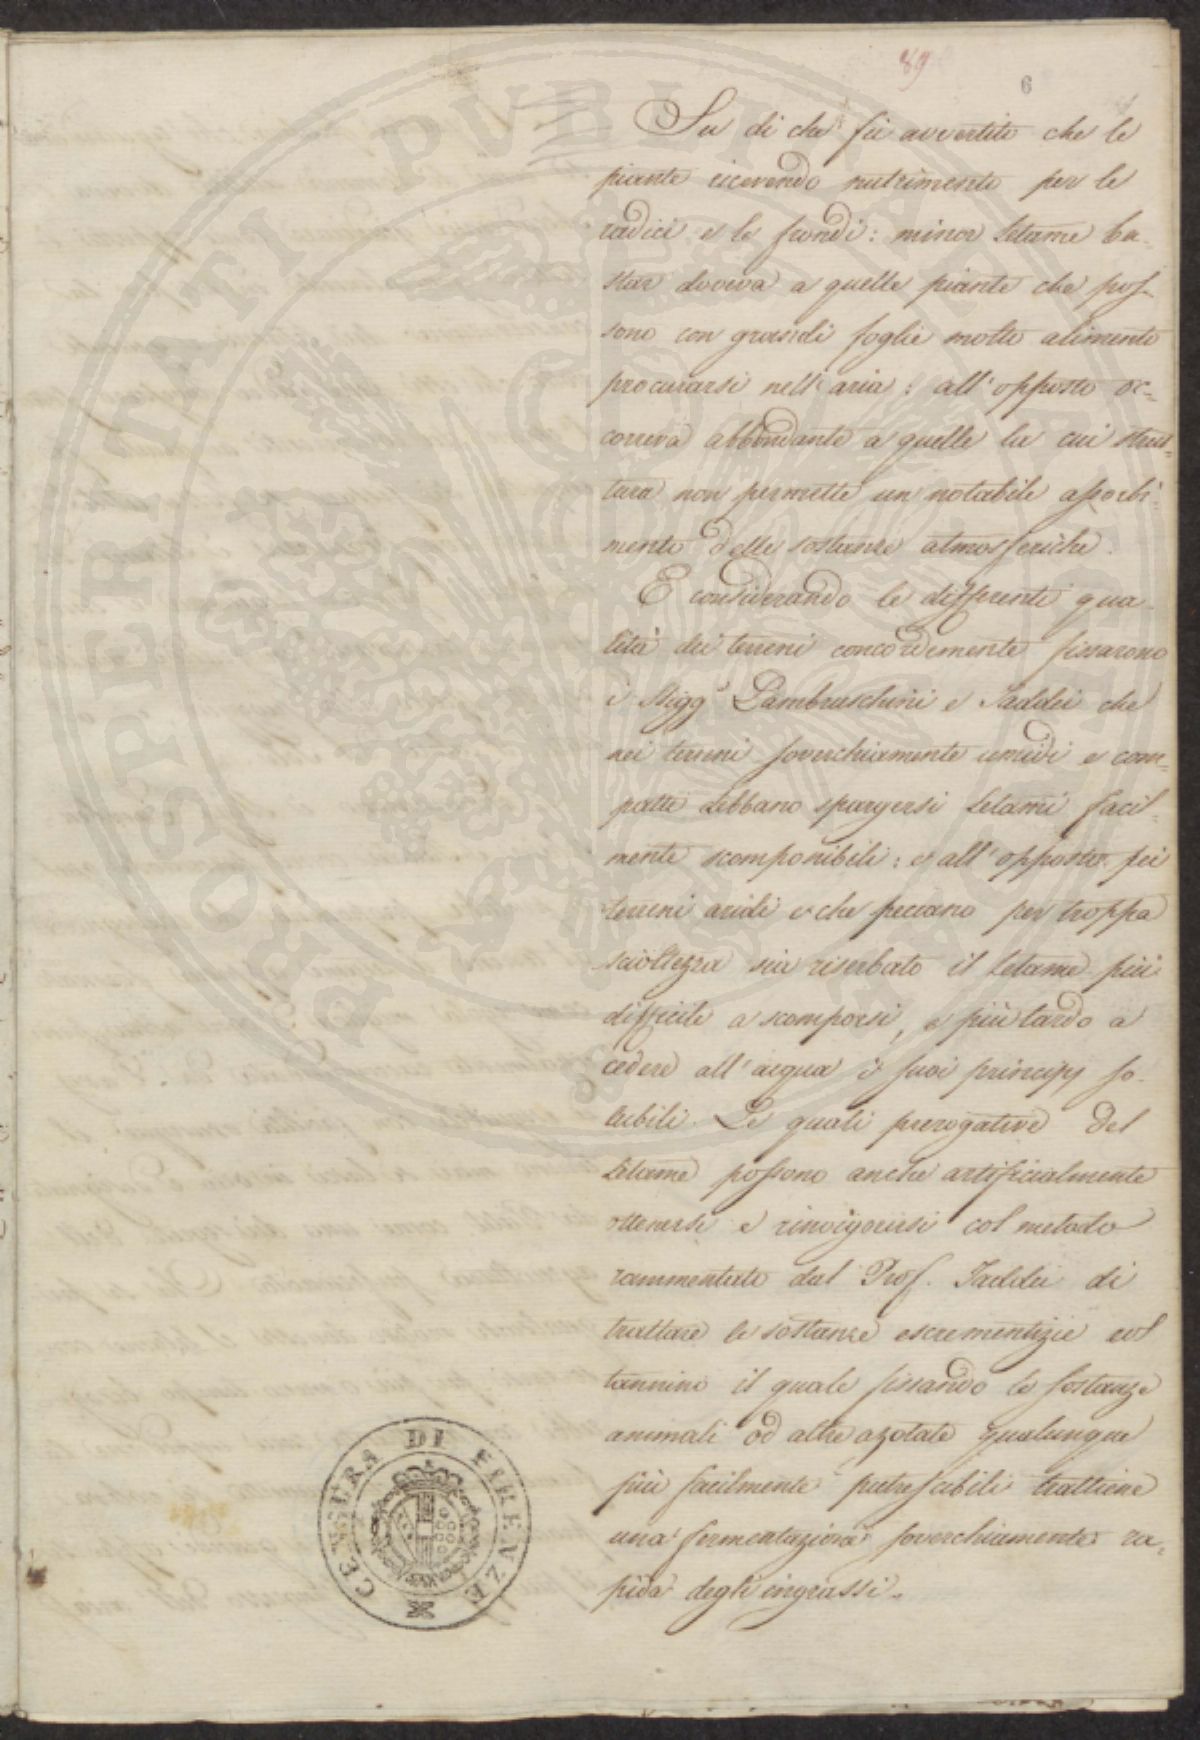 89
6
Su di che fù avvertito che le
piante ricevendo nutrimento per le
radici e le frondi: minor letame ba-
star doveva a quelle piante che pos-
sono con grandi foglie molto alimento
procurarsi nell'aria: all'opposto oc-
correva abbondante a quelle la cui strut-
tura non permette un notabile assorbi-
mento delle sostanze atmosferiche.
E considerando le differenti qua-
lità dei terreni concordemente fissarono
i Sigg.ri Lambruschini e Taddei che
nei terreni soverchiamente umidi e com-
patti debbano spargersi letami facil-
mente scomponibili: e all'opposto pei
terreni aridi e che peccano per troppa
scioltezza sia riserbato il letame più
difficile a scomporsi, e più tardo a
cedere all'acqua i suoi principj so-
lubili. Le quali prerogative del
letame possono anche artificialmente
ottenersi e rinvigorirsi col metodo
rammentato dal Prof. Taddei di
trattare le sostanze escrementizie col
tannino il quale fissando le sostanze
animali od altre azotate qualunque
più facilmente putrescibili trattiene
una fermentazione soverchiamente ra-
pida degli ingrassi.
CENSURA DI FIRENZE
PROSPERITATI PUBLICAE